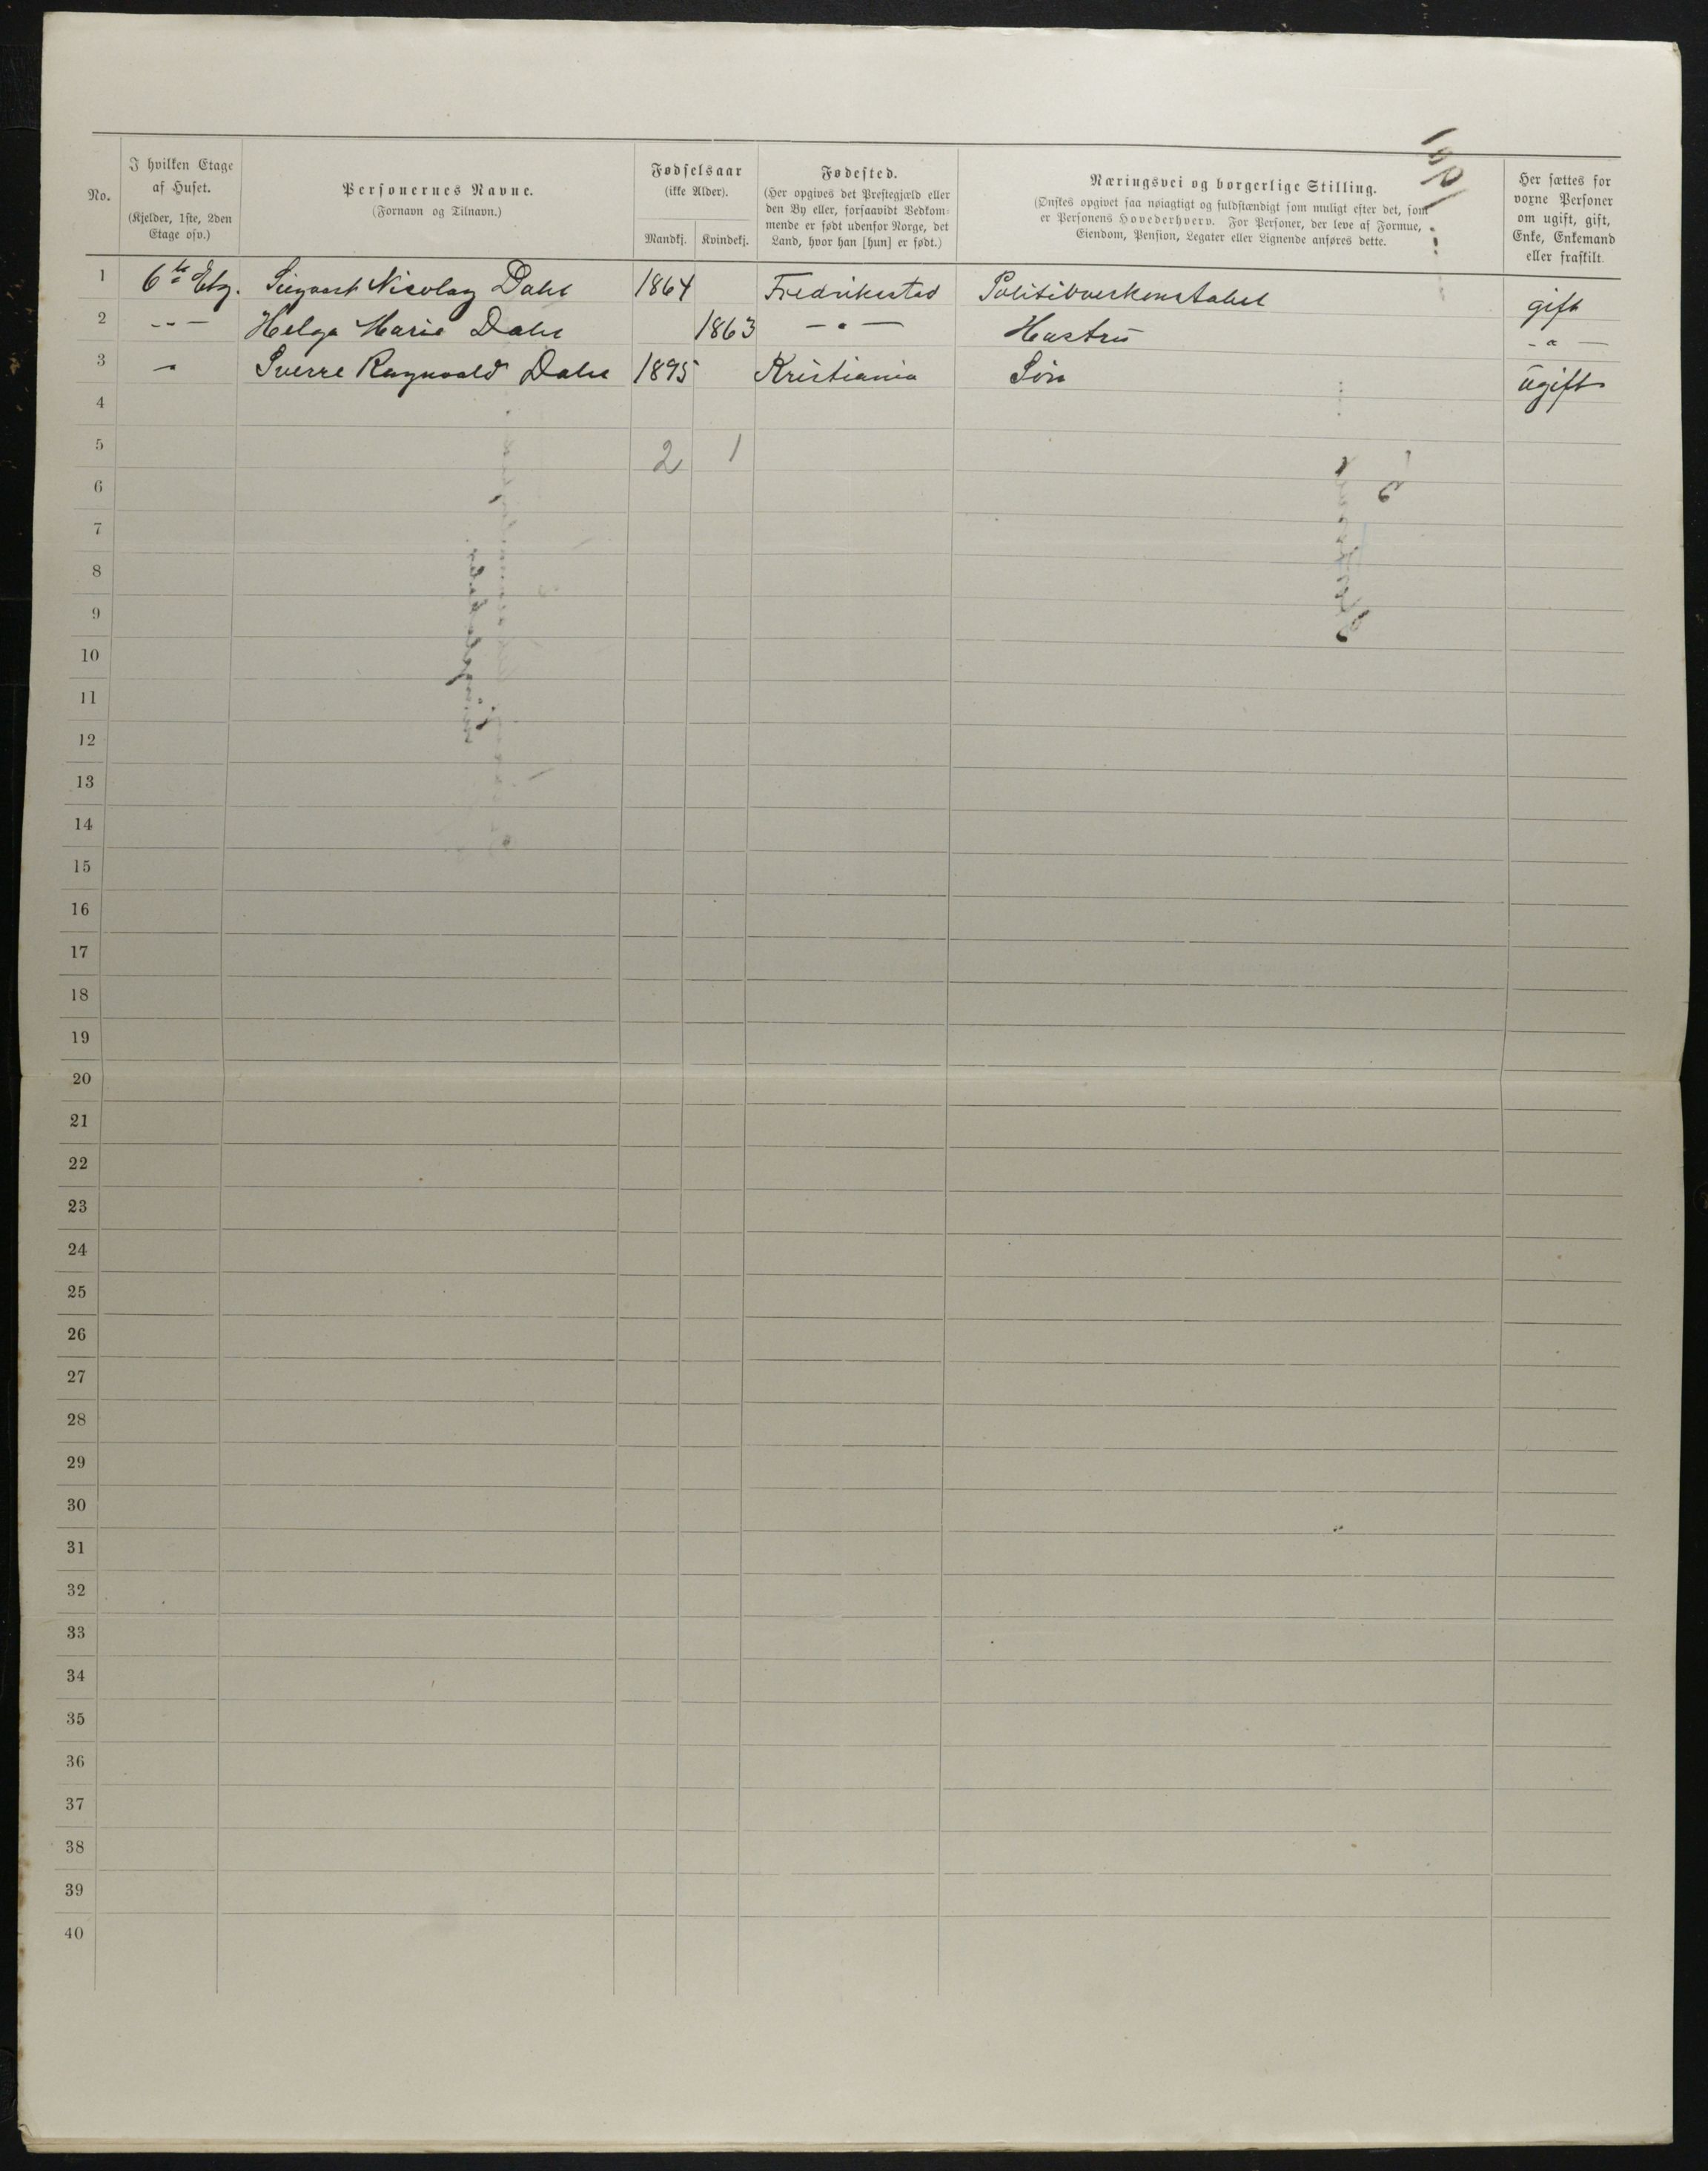 No.
I hvilken Etage
af Huset.
(Kjelder, 1ste, 2den
Etage osv.)
Personernes Navne.
(Fornavn og Tilnavn.)
Fødselsaar
(ikke Alder).
Mandkj. Kvindekj.
Fødested.
(Her opgives det Prestegjæld eller
den By eller, forsaavidt Vedkom-
mende er født udenfor Norge, det
Land, hvor han [hun] er født.)
Næringsvei og borgerlige Stilling.
(Ønskes opgivet saa nøiagtigt og fuldstændigt som muligt efter det, som
er Personens Hovederhverv. For Personer, der leve af Formue,
Eiendom, Pension, Legater eller Lignende anføres dette.
Her sættes for
voxne Personer
om ugift, gift,
Enke, Enkemand
eller fraskilt.
1 6te Etg. Nicolay Dahl 1864 Fredrikstad gift
2 -"- Helga Marie Dahl 1863 -"- Hustru -"-
3 " Sverre Ragnvald Dahl 1895 Kristiania Søn ugift
4
5 2 1
6
7
8
9
10
11
12
13
14
15
16
17
18
19
20
21
22
23
24
25
26
27
28
29
30
31
32
33
34
35
36
37
38
39
40